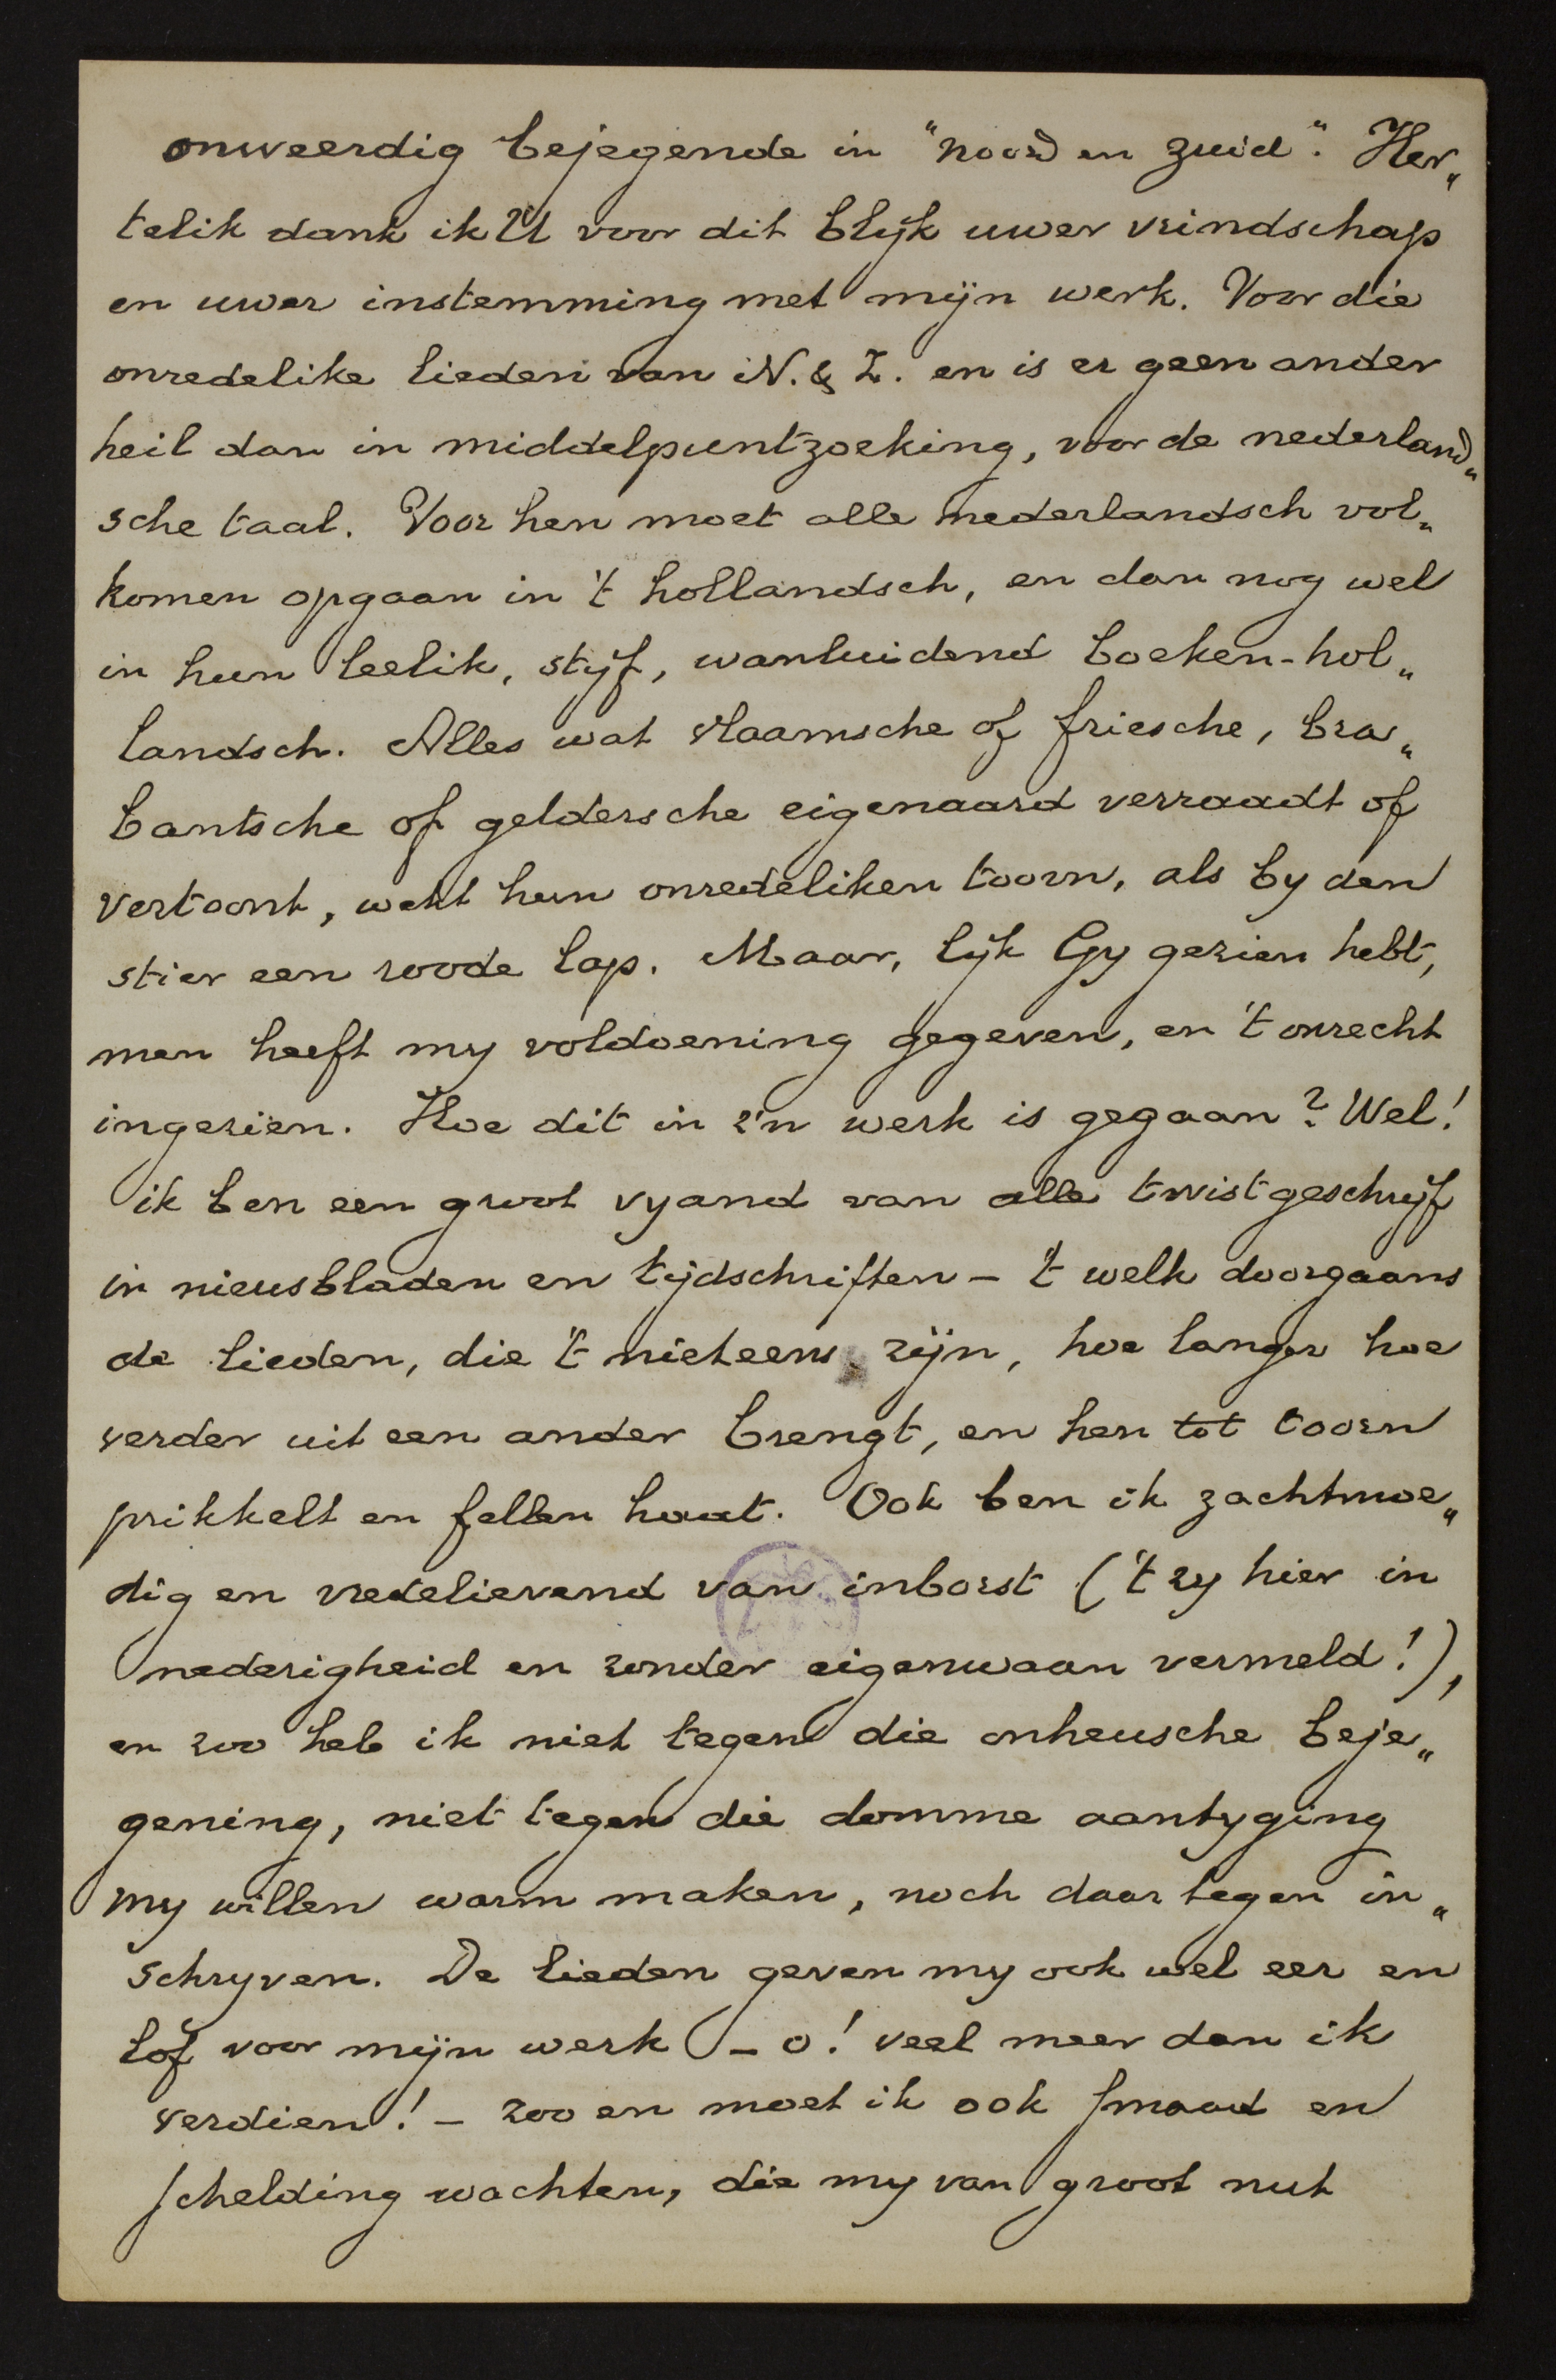 onweerdig bejegende in "Noord en Zuid". Her„
telik dank ik U voor dit blijk uwer vrindschap
en uwer instemming met mijn werk. Voor die
onredelike lieden van N. & Z. en is er geen ander
heil dan in middelpuntzoeking, voor de nederland„
sche taal. Voor hen moet alle nederlandsch vol„
komen opgaan in 't hollandsch, en dan nog wel
in hun leelik, stijf, wanluidend boeken-hol„
landsch. Alles wat vlaamsche of friesche, bra„
bantsche of geldersche eigenaard verraadt of
vertoont, wekt hun onredeliken toorn, als by den
stier een roode lap. Maar, lijk Gy gezien hebt,
men heeft my voldoening gegeven, en 't onrecht
ingezien. Hoe dit in z'n werk is gegaan? Wel!
ik ben een groot vyand van alle twistgeschrijf
in nieusbladen en tijdschriften – 't welk doorgaans
de lieden, die 't niet eens zijn, hoe langer hoe
verder uit een ander brengt, en hen tot toorn
prikkelt en fellen haat. Ook ben ik zachtmoe„
dig en vredelievend van inborst ('t zy hier in
nederigheid en zonder eigenwaan vermeld!),
en zoo heb ik niet tegen die onheusche beje„
gening, niet tegen die domme aantyging
my willen warm maken, noch daar tegen in„
schryven. De lieden geven my ook wel eer en
lof voor mijn werk – o! veel meer dan ik
verdien! – zoo en moet ik ook smaad en
schelding wachten, die my van groot nut